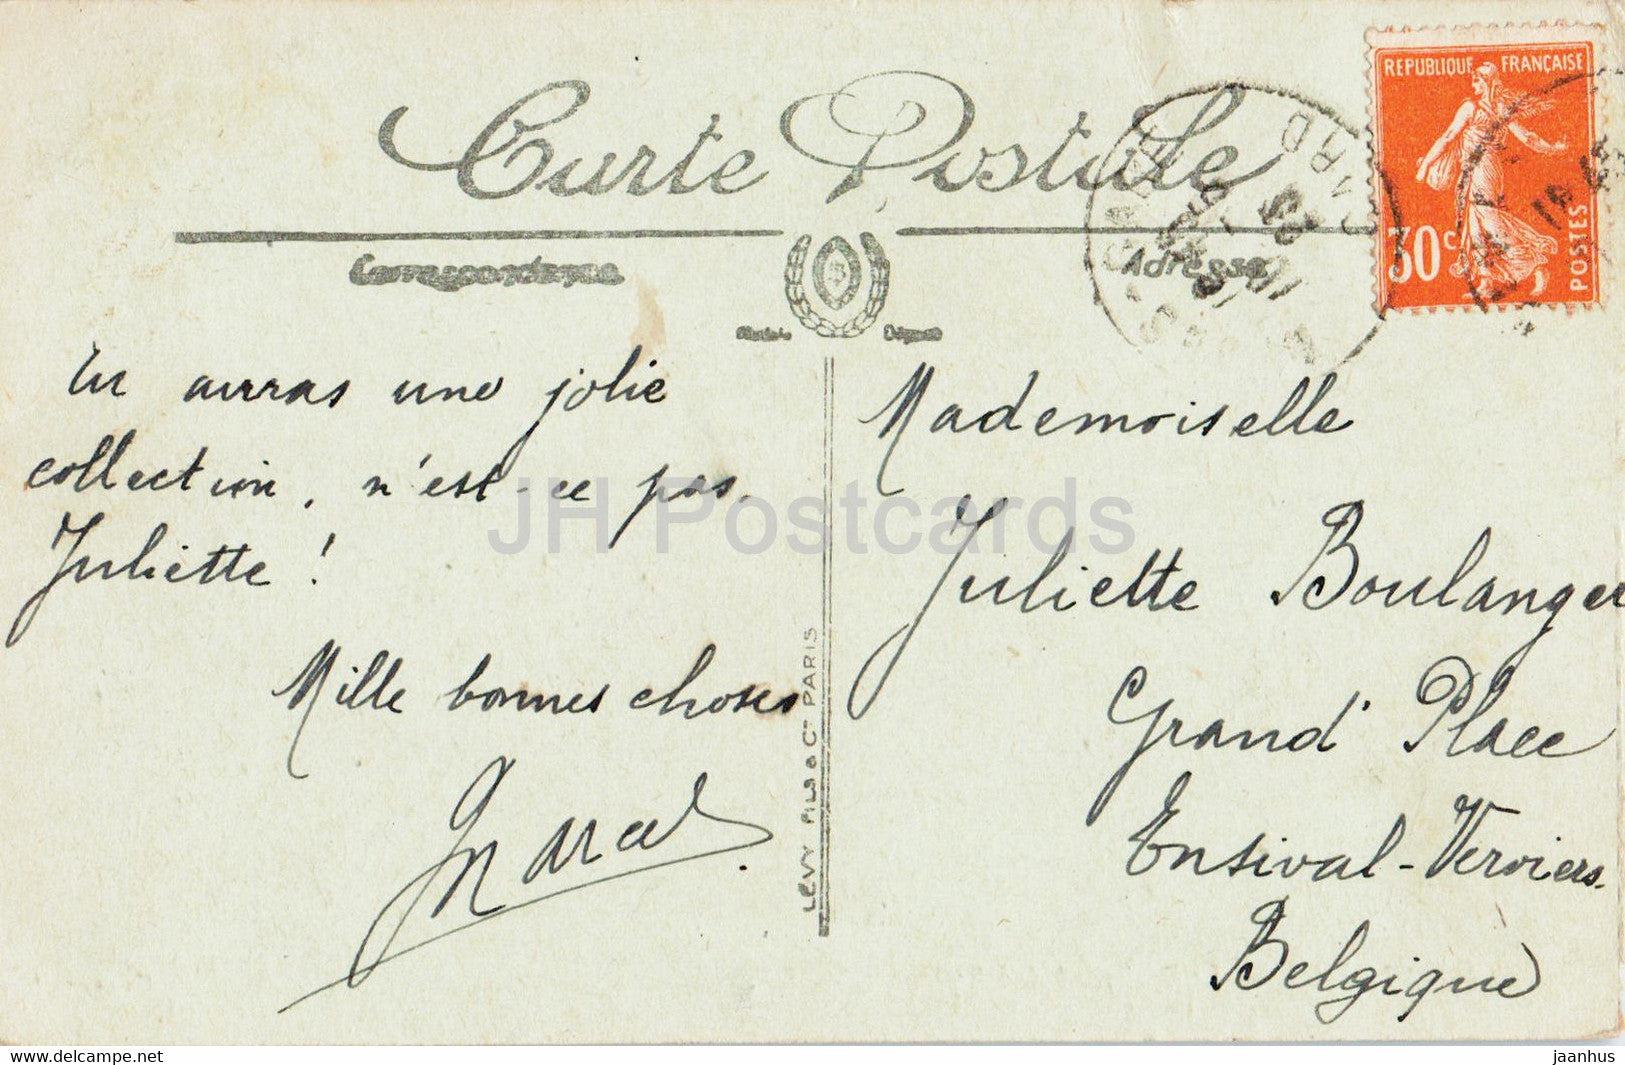 Carte Postale
Correspondance
Adresse
REPUBLIQUE FRANÇAISE
30c
POSTES
GARD
Tu auras une jolie
collection, n'est-ce pas,
Juliette !
Mille bonnes choses
Marcel
LEVY FILS & Cie PARIS
Mademoiselle
Juliette Boulanger
Grand' Place
Ensival-Verviers.
Belgique
JH Postcards
www.delcampe.net
jaanhus